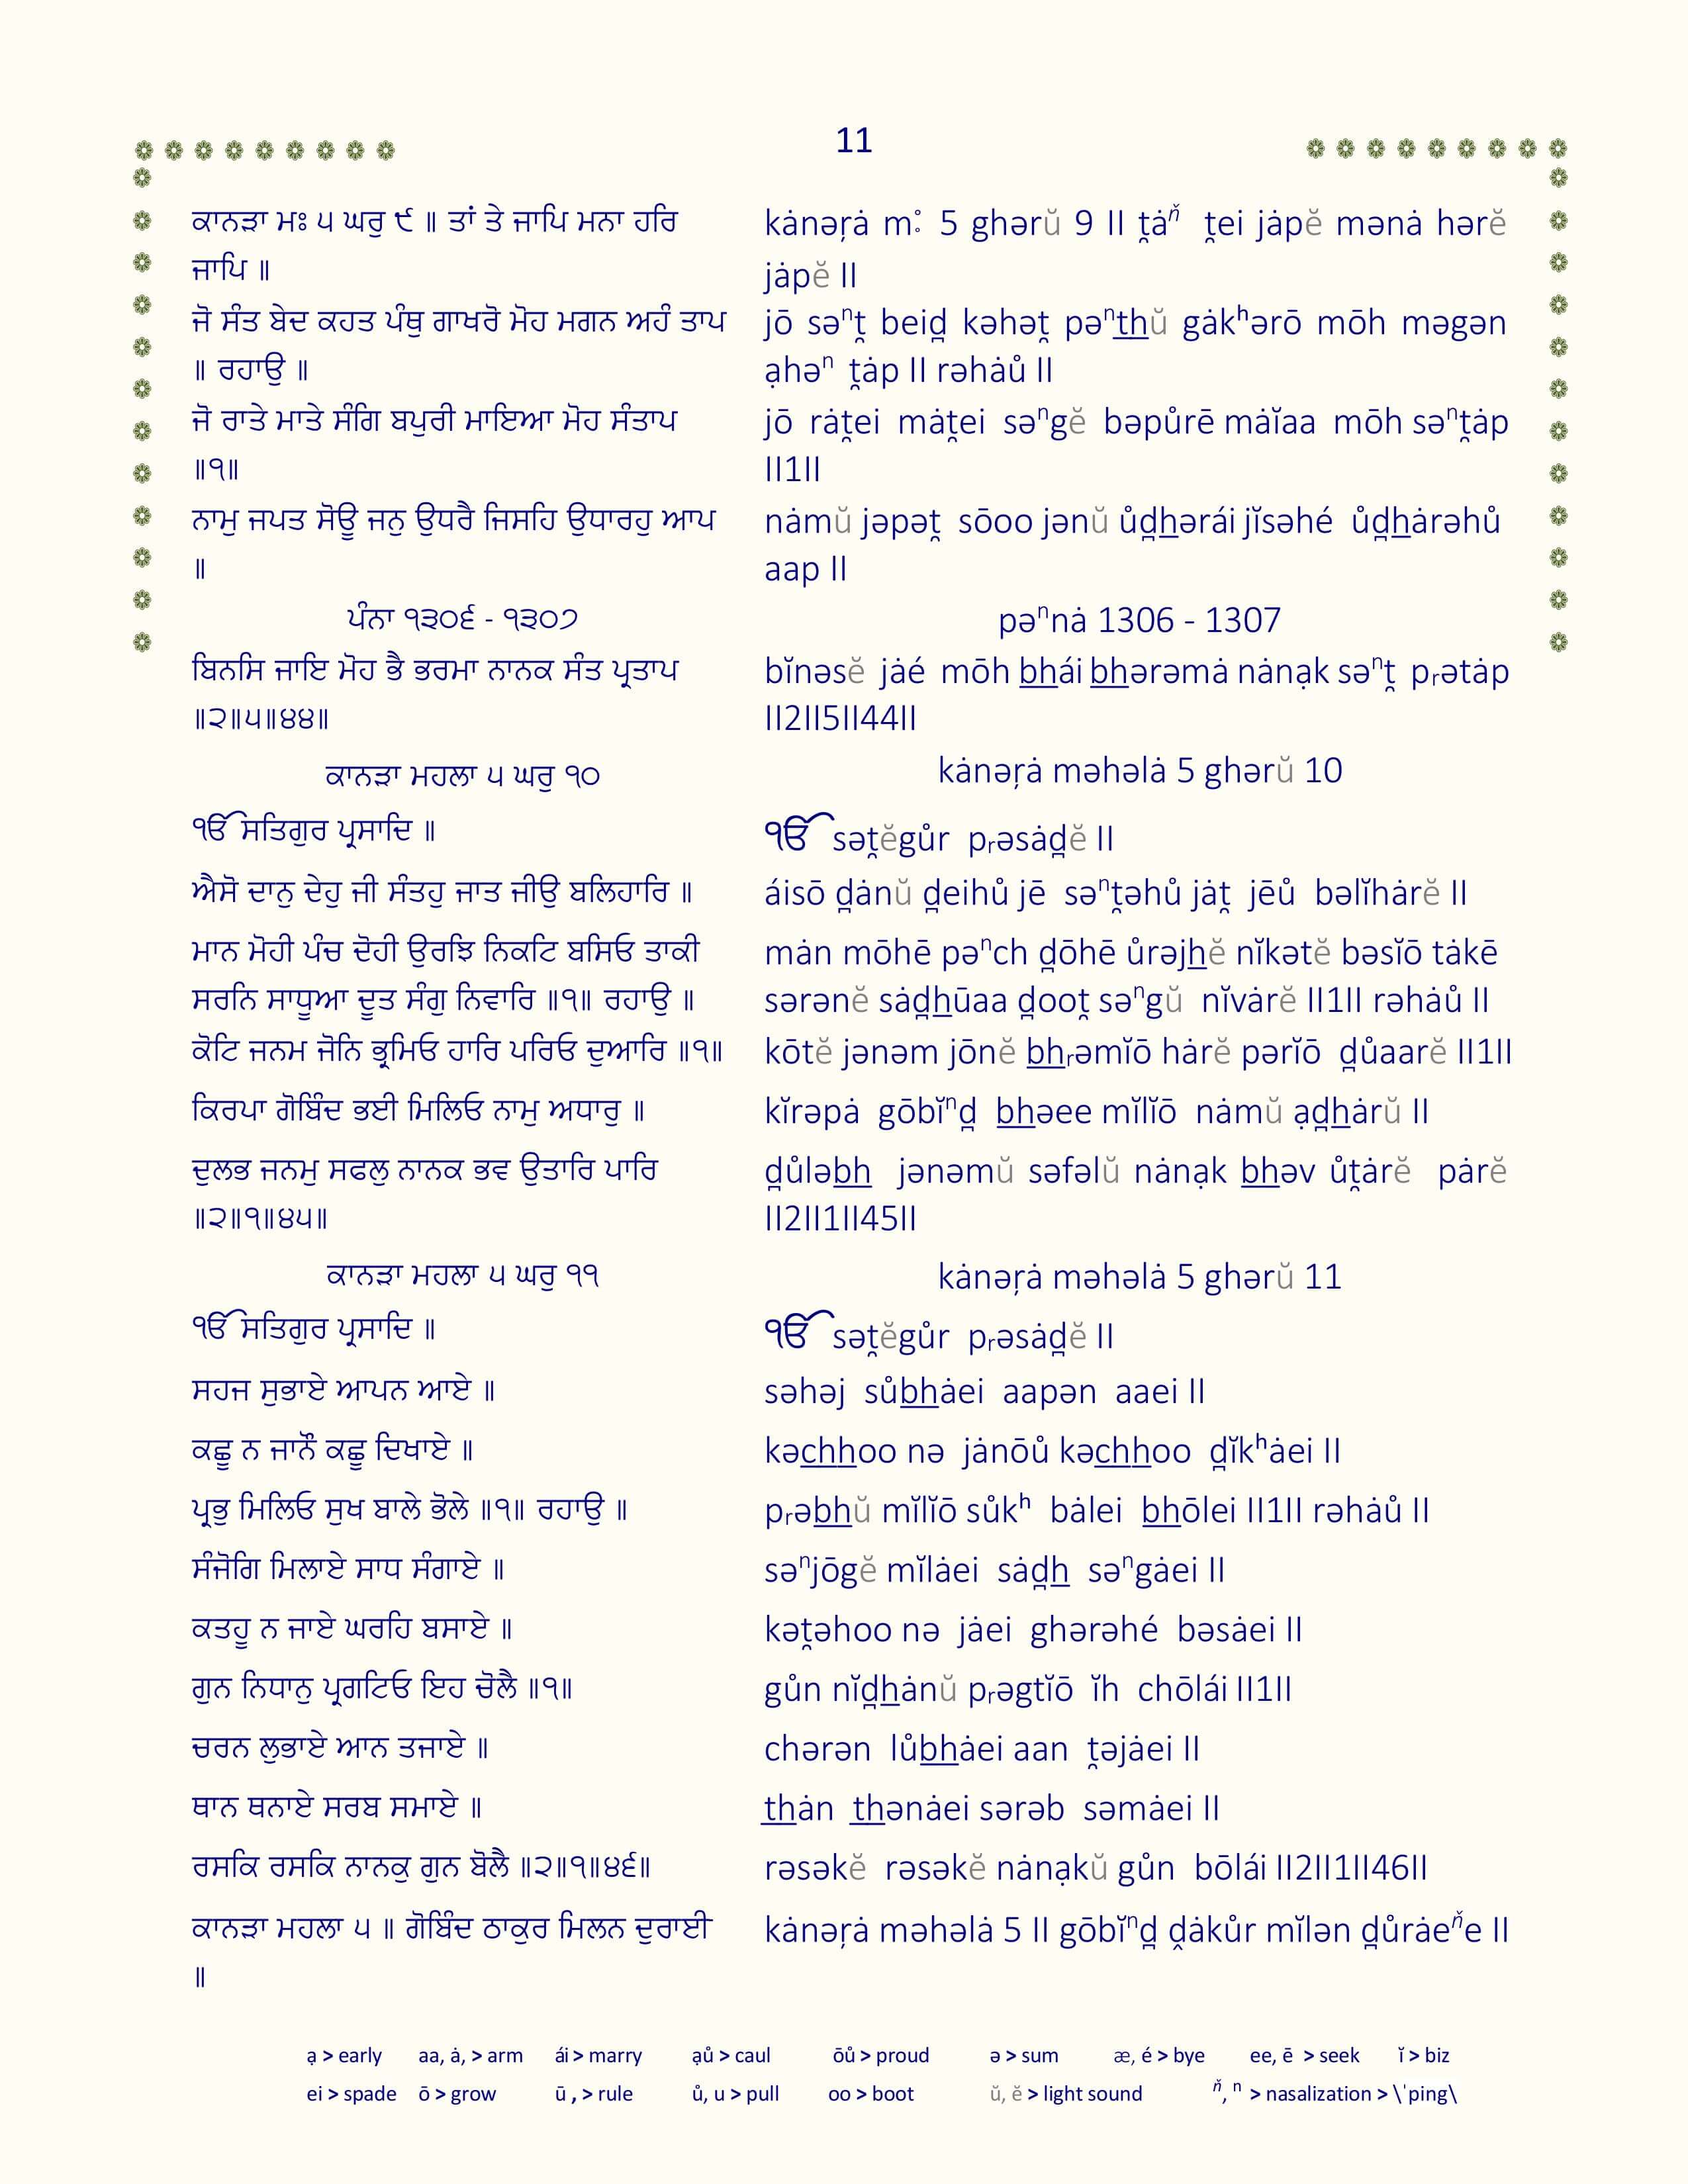 11
ਕਾਨੜਾ ਮਃ ੫ ਘਰੁ ੯ ॥ ਤਾਂ ਤੇ ਜਾਪਿ ਮਨਾ ਹਰਿ
ਜਾਪਿ ॥
ਜੋ ਸੰਤ ਬੇਦ ਕਹਤ ਪੰਥੁ ਗਾਖਰੋ ਮੋਹ ਮਗਨ ਅਹੰ ਤਾਪ
॥ ਰਹਾਉ ॥
ਜੋ ਰਾਤੇ ਮਾਤੇ ਸੰਗਿ ਬਪੁਰੀ ਮਾਇਆ ਮੋਹ ਸੰਤਾਪ
॥੧॥
ਨਾਮੁ ਜਪਤ ਸੋਊ ਜਨੁ ਉਧਰੈ ਜਿਸਹਿ ਉਧਾਰਹੁ ਆਪ
॥
ਪੰਨਾ ੧੩੦੬ - ੧੩੦੭
ਬਿਨਸਿ ਜਾਇ ਮੋਹ ਭੈ ਭਰਮਾ ਨਾਨਕ ਸੰਤ ਪ੍ਰਤਾਪ
॥੨॥੫॥੪੪॥
ਕਾਨੜਾ ਮਹਲਾ ੫ ਘਰੁ ੧੦
ੴ ਸਤਿਗੁਰ ਪ੍ਰਸਾਦਿ ॥
ਐਸੋ ਦਾਨੁ ਦੇਹੁ ਜੀ ਸੰਤਹੁ ਜਾਤ ਜੀਉ ਬਲਿਹਾਰਿ ॥
ਮਾਨ ਮੋਹੀ ਪੰਚ ਦੋਹੀ ਉਰਝਿ ਨਿਕਟਿ ਬਸਿਓ ਤਾਕੀ
ਸਰਨਿ ਸਾਧੂਆ ਦੂਤ ਸੰਗੁ ਨਿਵਾਰਿ ॥੧॥ ਰਹਾਉ ॥
ਕੋਟਿ ਜਨਮ ਜੋਨਿ ਭ੍ਰਮਿਓ ਹਾਰਿ ਪਰਿਓ ਦੁਆਰਿ ॥੧॥
ਕਿਰਪਾ ਗੋਬਿੰਦ ਭਈ ਮਿਲਿਓ ਨਾਮੁ ਅਧਾਰੁ ॥
ਦੁਲਭ ਜਨਮੁ ਸਫਲੁ ਨਾਨਕ ਭਵ ਉਤਾਰਿ ਪਾਰਿ
॥੨॥੧॥੪੫॥
ਕਾਨੜਾ ਮਹਲਾ ੫ ਘਰੁ ੧੧
ੴ ਸਤਿਗੁਰ ਪ੍ਰਸਾਦਿ ॥
ਸਹਜ ਸੁਭਾਏ ਆਪਨ ਆਏ ॥
ਕਛੂ ਨ ਜਾਨੌ ਕਛੂ ਦਿਖਾਏ ॥
ਪ੍ਰਭੁ ਮਿਲਿਓ ਸੁਖ ਬਾਲੇ ਭੋਲੇ ॥੧॥ ਰਹਾਉ ॥
ਸੰਜੋਗਿ ਮਿਲਾਏ ਸਾਧ ਸੰਗਾਏ ॥
ਕਤਹੂ ਨ ਜਾਏ ਘਰਹਿ ਬਸਾਏ ॥
ਗੁਨ ਨਿਧਾਨੁ ਪ੍ਰਗਟਿਓ ਇਹ ਚੋਲੈ ॥੧॥
ਚਰਨ ਲੁਭਾਏ ਆਨ ਤਜਾਏ ॥
ਥਾਨ ਥਨਾਏ ਸਰਬ ਸਮਾਏ ॥
ਰਸਕਿ ਰਸਕਿ ਨਾਨਕੁ ਗੁਨ ਬੋਲੈ ॥੨॥੧॥੪੬॥
ਕਾਨੜਾ ਮਹਲਾ ੫ ॥ ਗੋਬਿੰਦ ਠਾਕੁਰ ਮਿਲਨ ਦੁਰਾਈ
॥
kȧnəŗȧ m ͦ: 5 ghərŭ 9 II ṱȧᶰ̌ ṱei jȧpĕ mənȧ hərĕ
jȧpĕ II
jō səⁿṱ beiḓ kəhəṱ pəⁿt̲h̲ŭ gȧkʰərō mōh məgən
ạhəⁿ ṱȧp II rəhȧů II
jō rȧṱei mȧṱei səⁿgĕ bəpůrē mȧĭaa mōh səⁿṱȧp
II1II
nȧmŭ jəpəṱ sōoo jənŭ ůḓh̲ərái jĭsəhé ůḓh̲ȧrəhů
aap II
pəⁿnȧ 1306 - 1307
bĭnəsĕ jȧé mōh b̲h̲ái b̲h̲ərəmȧ nȧnạk səⁿṱ pᵣətȧp
II2II5II44II
kȧnəŗȧ məhəlȧ 5 ghərŭ 10
ੴ səṱĕgůr pᵣəsȧḓĕ II
áisō ḓȧnŭ ḓeihů jē səⁿṱəhů jȧṱ jēů bəlĭhȧrĕ II
mȧn mōhē pəⁿch ḓōhē ůrəjh̲ĕ nĭkətĕ bəsĭō tȧkē
sərənĕ sȧḓh̲ūaa ḓooṱ səⁿgŭ nĭvȧrĕ II1II rəhȧů II
kōtĕ jənəm jōnĕ b̲h̲ᵣəmĭō hȧrĕ pərĭō ḓůaarĕ II1II
kĭrəpȧ gōbĭⁿḓ b̲h̲əee mĭlĭō nȧmŭ ạḓh̲ȧrŭ II
ḓůləb̲h̲ jənəmŭ səfəlŭ nȧnạk b̲h̲əv ůṱȧrĕ pȧrĕ
II2II1II45II
kȧnəŗȧ məhəlȧ 5 ghərŭ 11
ੴ səṱĕgůr pᵣəsȧḓĕ II
səhəj sůb̲h̲ȧei aapən aaei II
kəc̲h̲h̲oo nə jȧnōů kəc̲h̲h̲oo ḓĭkʰȧei II
pᵣəb̲h̲ŭ mĭlĭō sůkʰ bȧlei b̲h̲ōlei II1II rəhȧů II
səⁿjōgĕ mĭlȧei sȧḓh̲ səⁿgȧei II
kəṱəhoo nə jȧei ghərəhé bəsȧei II
gůn nĭḓh̲ȧnŭ pᵣəgtĭō ĭh chōlái II1II
chərən lůb̲h̲ȧei aan ṱəjȧei II
t̲h̲ȧn t̲h̲ənȧei sərəb səmȧei II
rəsəkĕ rəsəkĕ nȧnạkŭ gůn bōlái II2II1II46II
kȧnəŗȧ məhəlȧ 5 II gōbĭⁿḓ ḓȧkůr mĭlən ḓůrȧeᶰ̌e II
ạ > early aa, ȧ, > arm ái > marry ạů > caul ōů > proud ə > sum æ, é > bye ee, ē > seek ĭ > biz
ei > spade ō > grow ū , > rule ů, u > pull oo > boot ŭ, ĕ > light sound ᶰ̌, ⁿ > nasalization > \ˈping\